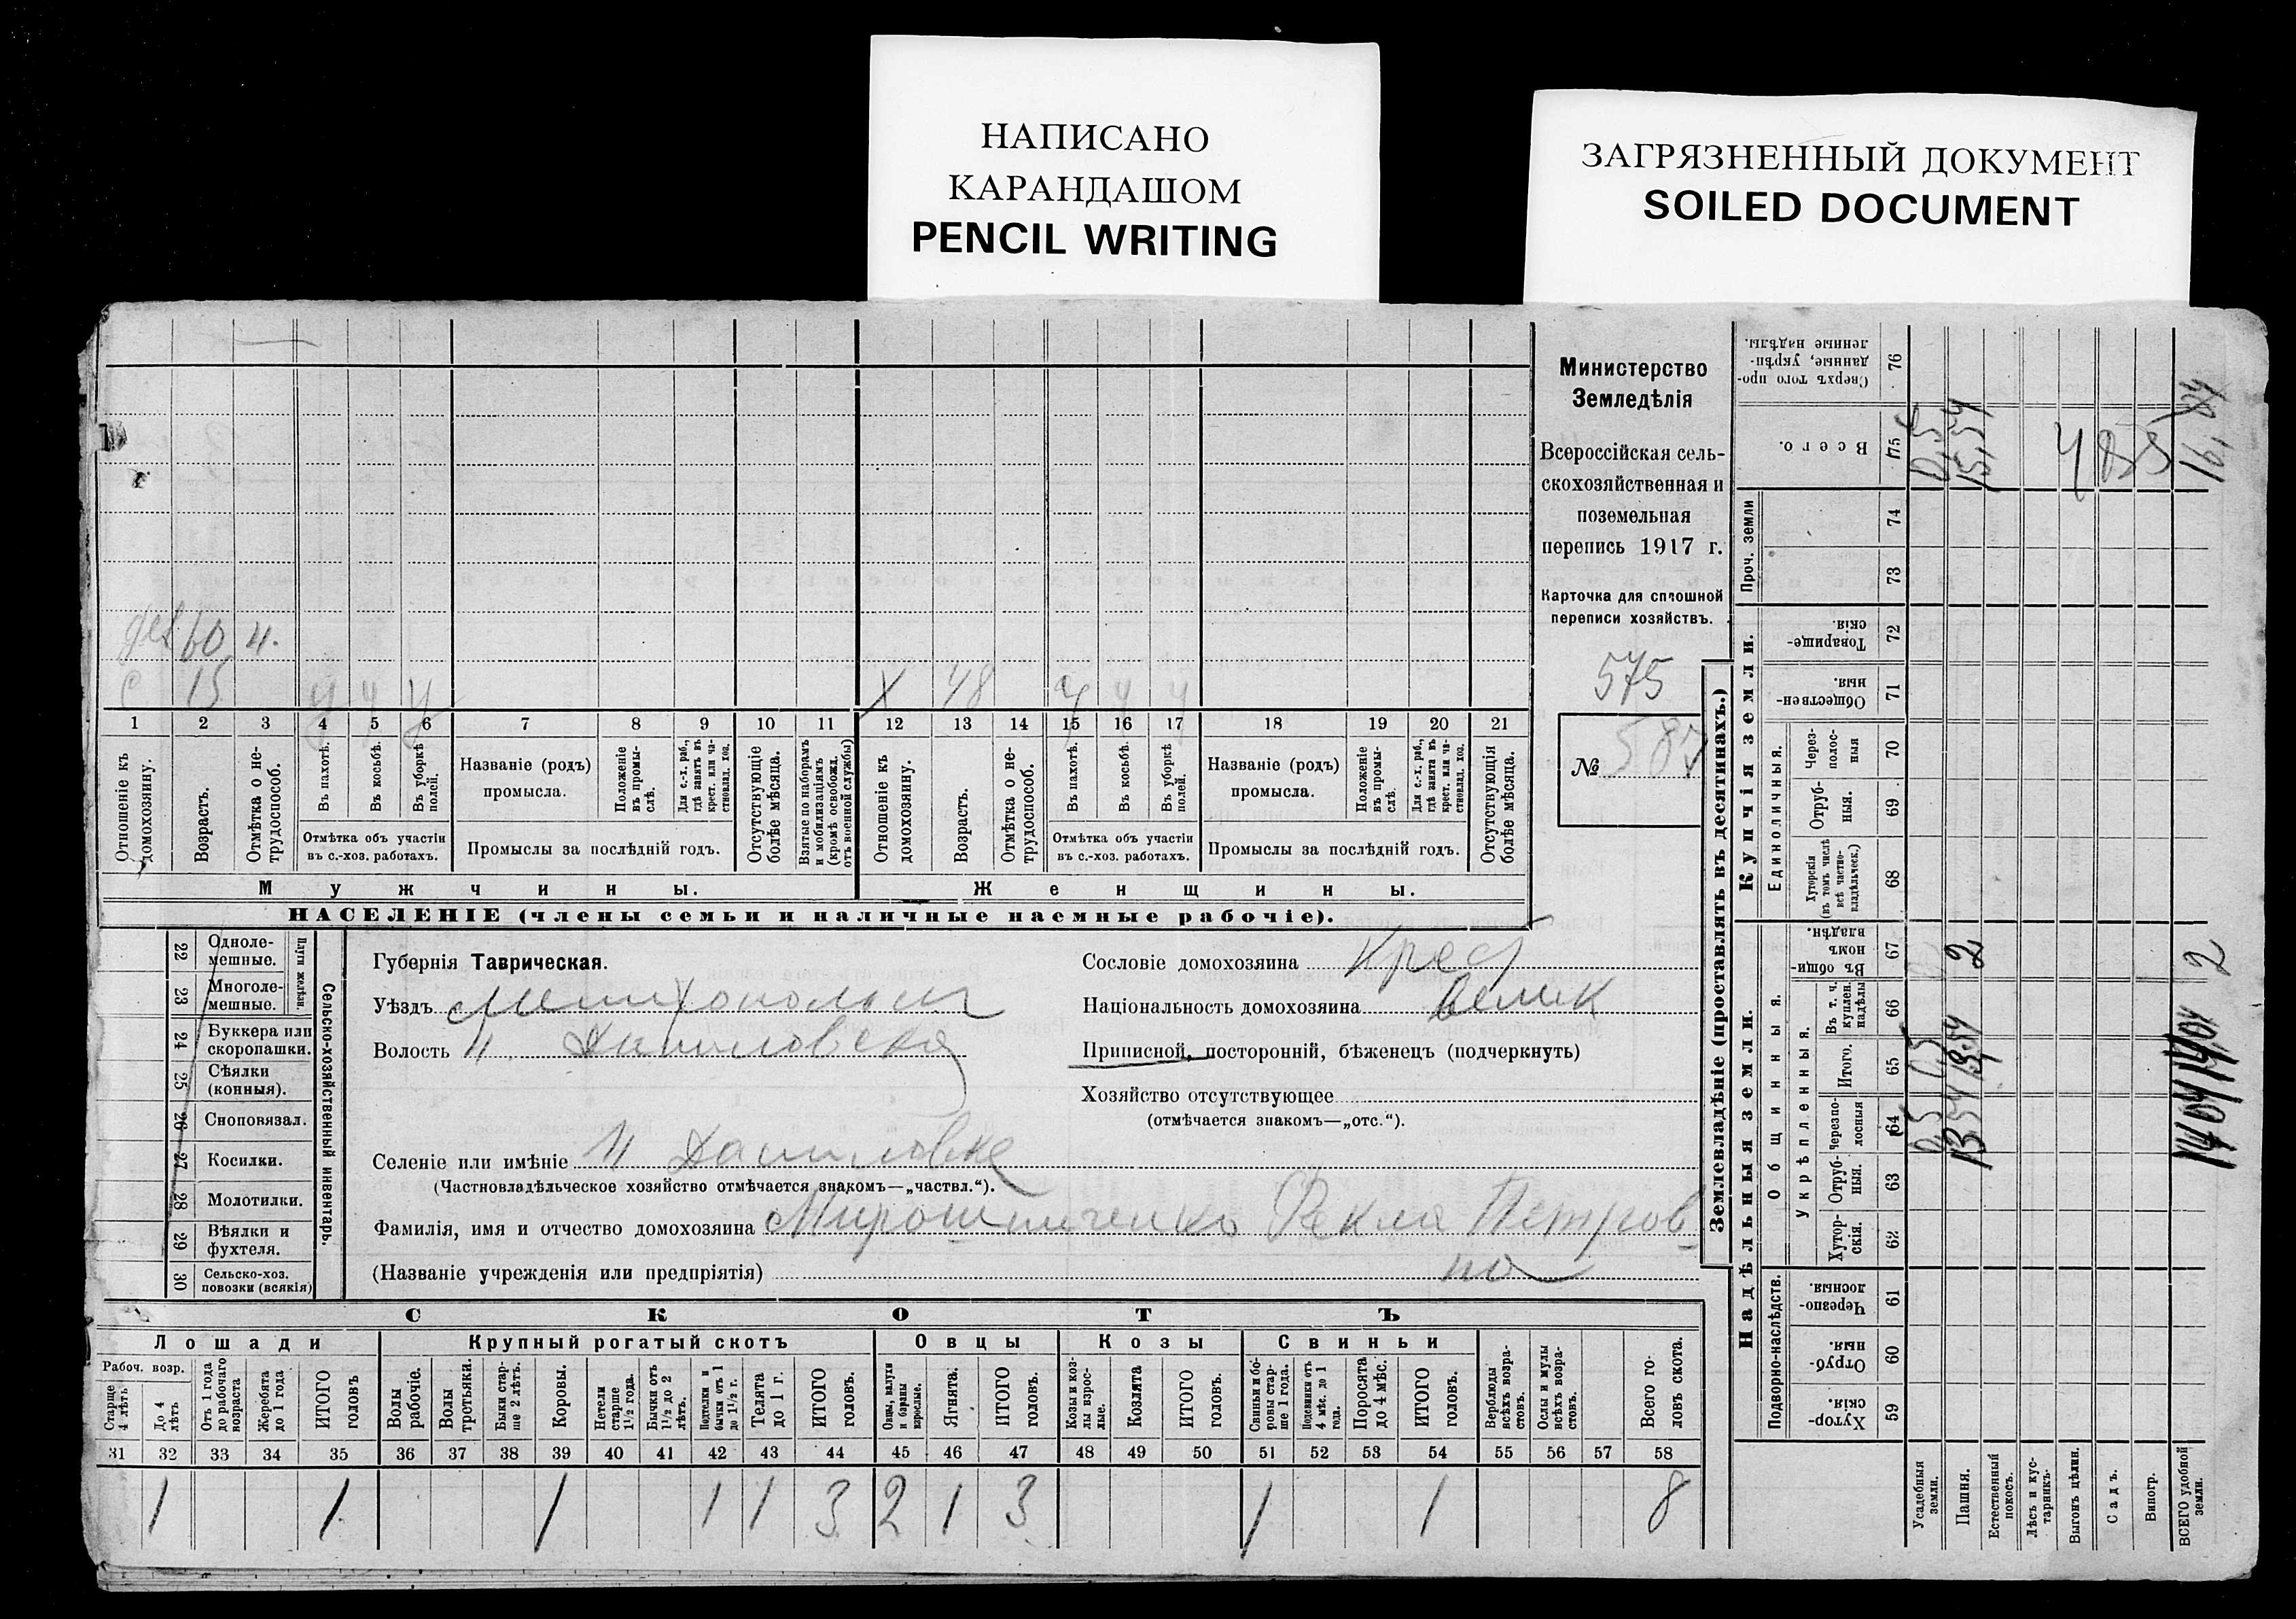 НАПИСАНО
КАРАНДАШОМ
PENCIL WRITING
ЗАГРЯЗНЕННЫЙ ДОКУМЕНТ
SOILED DOCUMENT
Министерство
Земледѣлія
Всероссійская сель-
скохозяйственная и
поземельная
перепись 1917 г.
Карточка для сплошной
переписи хозяйствъ.
575
№ 587
60 н.
с 15 у у у
х 48 у у у
1 2 3 4 5 6 7 8 9 10 11 12 13 14 15 16 17 18 19 20 21
Отношеніе къ домохозяину.
Возрастъ.
Отмѣтка о не-
трудоспособ.
Въ пахотѣ.
Въ косьбѣ.
Въ уборкѣ полей.
Отмѣтка объ участіи
въ с.-хоз. работахъ.
Названіе (родъ)
промысла.
Положеніе въ промы-
слѣ.
Для с.-х. раб., гдѣ занятъ въ крест. или ча-
стновлад. хоз.
Промыслы за послѣдній годъ.
Отсутствующіе болѣе мѣсяца.
Взятые по наборамъ и мобилизаціямъ (кромѣ освобожд. отъ военной службы)
Отношеніе къ домохозяину.
Возрастъ.
Отмѣтка о не-
трудоспособ.
Въ пахотѣ.
Въ косьбѣ.
Въ уборкѣ полей.
Отмѣтка объ участіи
въ с.-хоз. работахъ.
Названіе (родъ)
промысла.
Положеніе въ промы-
слѣ.
Для с.-х. раб., гдѣ занята въ крест. или ча-
стновлад. хоз.
Промыслы за послѣдній годъ.
Отсутствующія болѣе мѣсяца.
Мужчины.
Женщины.
НАСЕЛЕНІЕ (члены семьи и наличные наемные рабочіе).
Сельско-хозяйственный инвентарь.
Плуги желѣзн.
22 Одноле-
мешные.
23 Многоле-
мешные.
24 Буккера или
скоропашки.
25 Сѣялки
(конныя).
26 Сноповязал.
27 Косилки.
28 Молотилки.
29 Вѣялки и
фухтеля.
30 Сельско-хоз.
повозки (всякія)
Губернія Таврическая.
Уѣздъ Мелитопольск
Волость Н. Даниловская
Селеніе или имѣніе Н Даниловка
(Частновладѣльческое хозяйство отмѣчается знакомъ—„частвл.“).
Фамилія, имя и отчество домохозяина Мирошниченко Фекла Петров-
на
(Названіе учрежденія или предпріятія)
Сословіе домохозяина Крес
Національность домохозяина Велик
Приписной, посторонній, бѣженецъ (подчеркнуть)
Хозяйство отсутствующее
(отмѣчается знакомъ—„отс.“).
СКОТЪ
Лошади
Крупный рогатый скотъ
Овцы
Козы
Свиньи
Рабоч. возр.
Старше 4 лѣтъ
До 4 лѣтъ
Отъ 1 года до рабочаго возраста
Жеребята до 1 года
ИТОГО головъ
Волы рабочіе.
Волы третьяки.
Быки стар-
ше 2 лѣтъ.
Коровы.
Нетели старше 1½ года.
Бычки отъ 1½ до 2 лѣтъ.
Подтелки и бычки отъ 1 до 1½ г.
Телята до 1 г.
ИТОГО головъ.
Овцы, валухи и бараны взрослые.
Ягнята.
ИТОГО головъ.
Козы и коз-
лы взрос-
лые.
Козлята
ИТОГО головъ.
Свиньи и бо-
ровы стар-
ше 1 года.
Подсвинки отъ 4 мѣс. до 1 года.
Поросята до 4 мѣс.
ИТОГО головъ.
Верблюды всѣхъ возра-
стовъ.
Ослы и мулы всѣхъ возра-
стовъ.
Всего го-
ловъ скота.
31 32 33 34 35 36 37 38 39 40 41 42 43 44 45 46 47 48 49 50 51 52 53 54 55 56 57 58
1 1 1 1 1 3 2 1 3 1 1 8
Землевладѣніе (проставлять въ десятинахъ.)
Надѣльныя земли.
Купчія земли.
Проч. земли
Подворно-наслѣдств.
Общинныя.
Укрѣпленныя.
Единоличныя.
Хутор-
скія. 59
Отруб-
ныя. 60
Черезпо-
лосныя. 61
Хутор-
скія. 62
Отруб-
ныя. 63
Черезпо-
лосныя 64
Итого. 65
Въ т. ч. куплен. надѣлы 66
Въ общи-
номъ владѣн. 67
Хуторскія (въ томъ числѣ всѣ частно-
владѣльческ.) 68
Отруб-
ныя. 69
Через-
полос-
ныя 70
Обществен-
ныя. 71
Товарище-
скія. 72
73
74
Всего. 75
Сверхъ того про-
данные, укрѣп-
ленные надѣлы. 76
Усадебныя земли.
Пашня.
Естественный покосъ.
Лѣсъ и кус-
тарникъ.
Выгонъ цѣлин.
Садъ.
Виногр.
ВСЕГО удобной земли.
0,5 0,5 0,5
13.54 13.54 2 15,54
14 04 14 04 2 16,04